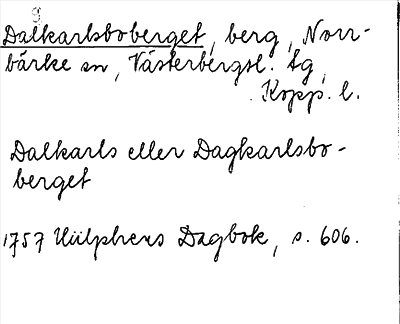 g
Dalkarlsboberget, berg, Norr-
bärke sn, Västerbergsl. tg,
Kopp. l.
Dalkarls eller Dagkarlsbo-
berget
1757 Hülphers Dagbok, s. 606.